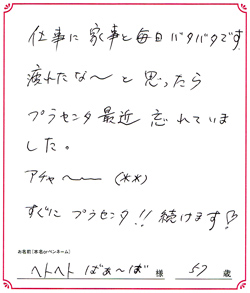 仕事に家事と毎日バタバタです。
疲れたな〜と思ったら
プラセンタ最近忘れていま
した。
アチャ〜〜 (**)
すぐにプラセンタ!! 続けます♡
お名前(本名orペンネーム)
ヘトヘトばぁ〜ば 様 57 歳